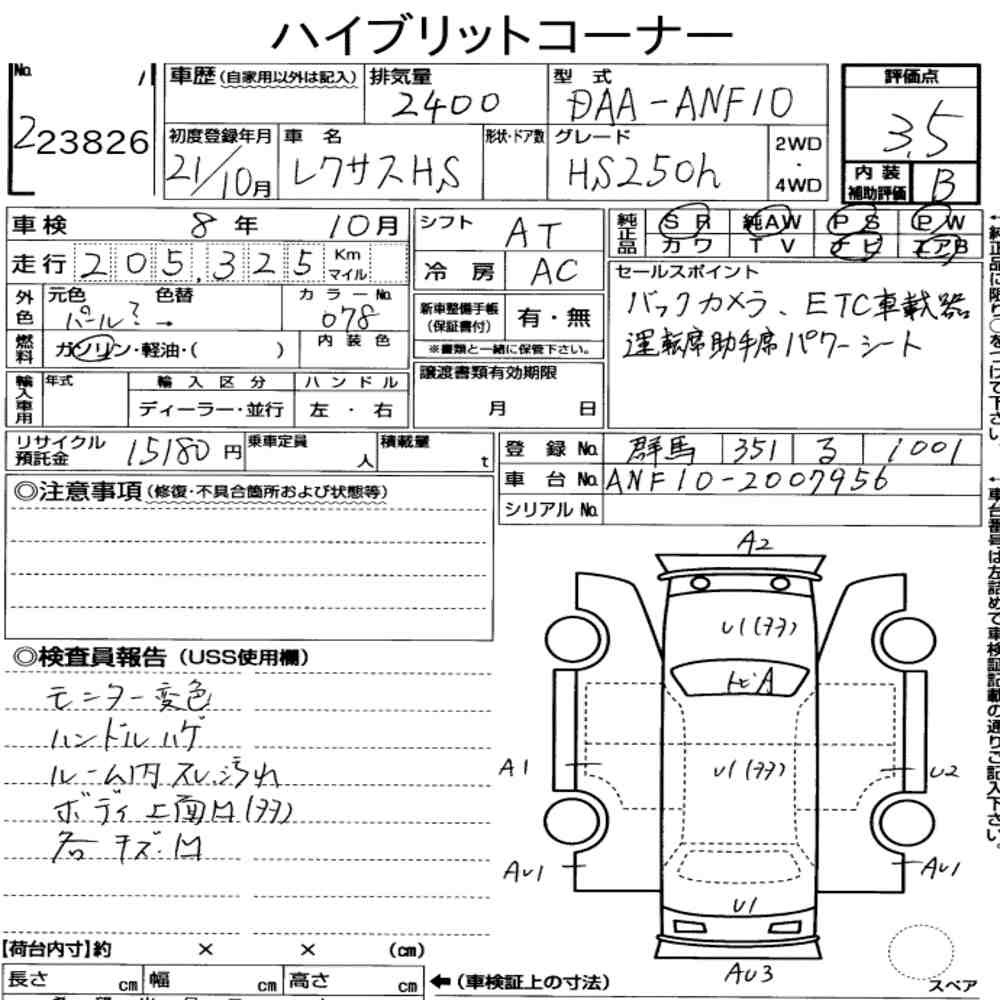 ハイブリットコーナー
No.
223826
車歴(自家用以外は記入)
排気量
2400
型 式
DAA-ANF10
評価点
3.5
初度登録年月
21/10月
車 名
レクサスHS
形状・ドア数
グレード
HS250h
2WD
・
4WD
内 装
補助評価
B
車検 8年 10月
シフト AT
純正品
SR 純AW PS PW
カワ TV ナビ エアB
走行 205,325 Km
マイル
冷 房 AC
セールスポイント
バックカメラ、ETC車載器
運転席助手席パワーシート
外色
元色 色替 カラーNo.
パール? → 078
新車整備手帳
(保証書付)
有・無
※書類と一緒に保管下さい。
燃料
ガソリン・軽油・( )
内装色
輸入車用
年式
輸入区分
ハンドル
ディーラー・並行
左 ・右
譲渡書類有効期限
月 日
リサイクル
預託金 15180円
乗車定員
人
積載量
t
登 録 No. 群馬 351 る 1001
車 台 No. ANF10-2007956
シリアル No.
◎注意事項(修復・不具合箇所および状態等)
◎検査員報告(USS使用欄)
モニター変色
ハンドルハゲ
ルーム内スレ、汚れ
ボディ上面凹(ヌヌ)
各キズ・凹
A2
U1(ヌヌ)
トビA
A1
U1(ヌヌ)
U2
AU1
AU1
U1
AU3
スペア
【荷台内寸】約 × × (cm)
長さ cm 幅 cm 高さ cm
←(車検証上の寸法)
←純正品に限り○をつけて下さい。
←車台番号は左詰めで車検証記載の通りご記入下さい。